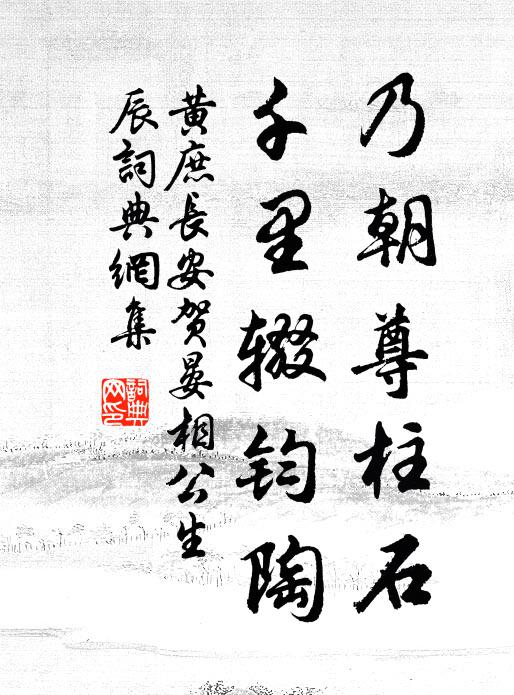 乃朝尊柱石
千里辍钧陶
黄庶长安贺晏相公生
辰詞典網集
詞典
网印